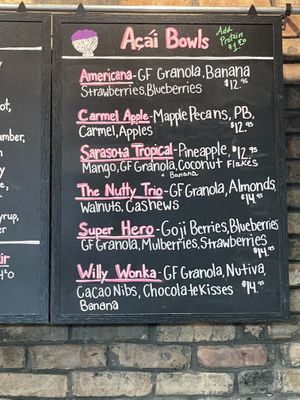 Açaí Bowls
Add
Protein
$1.50
Americana-GF Granola, Banana
Strawberries, Blueberries $12.95
Carmel Apple-Mapple Pecans, PB,
Carmel, Apples $12.95
Sarasota Tropical-Pineapple, $12.95
Mango, GF Granola, Coconut Flakes
+ Banana
The Nutty Trio-GF Granola, Almonds,
Walnuts, Cashews $14.95
Super Hero-Goji Berries, Blueberries
GF Granola, Mulberries, Strawberries
$14.95
Willy Wonka-GF Granola, Nutiva,
Cacao Nibs, Chocolate Kisses $14.95
Banana